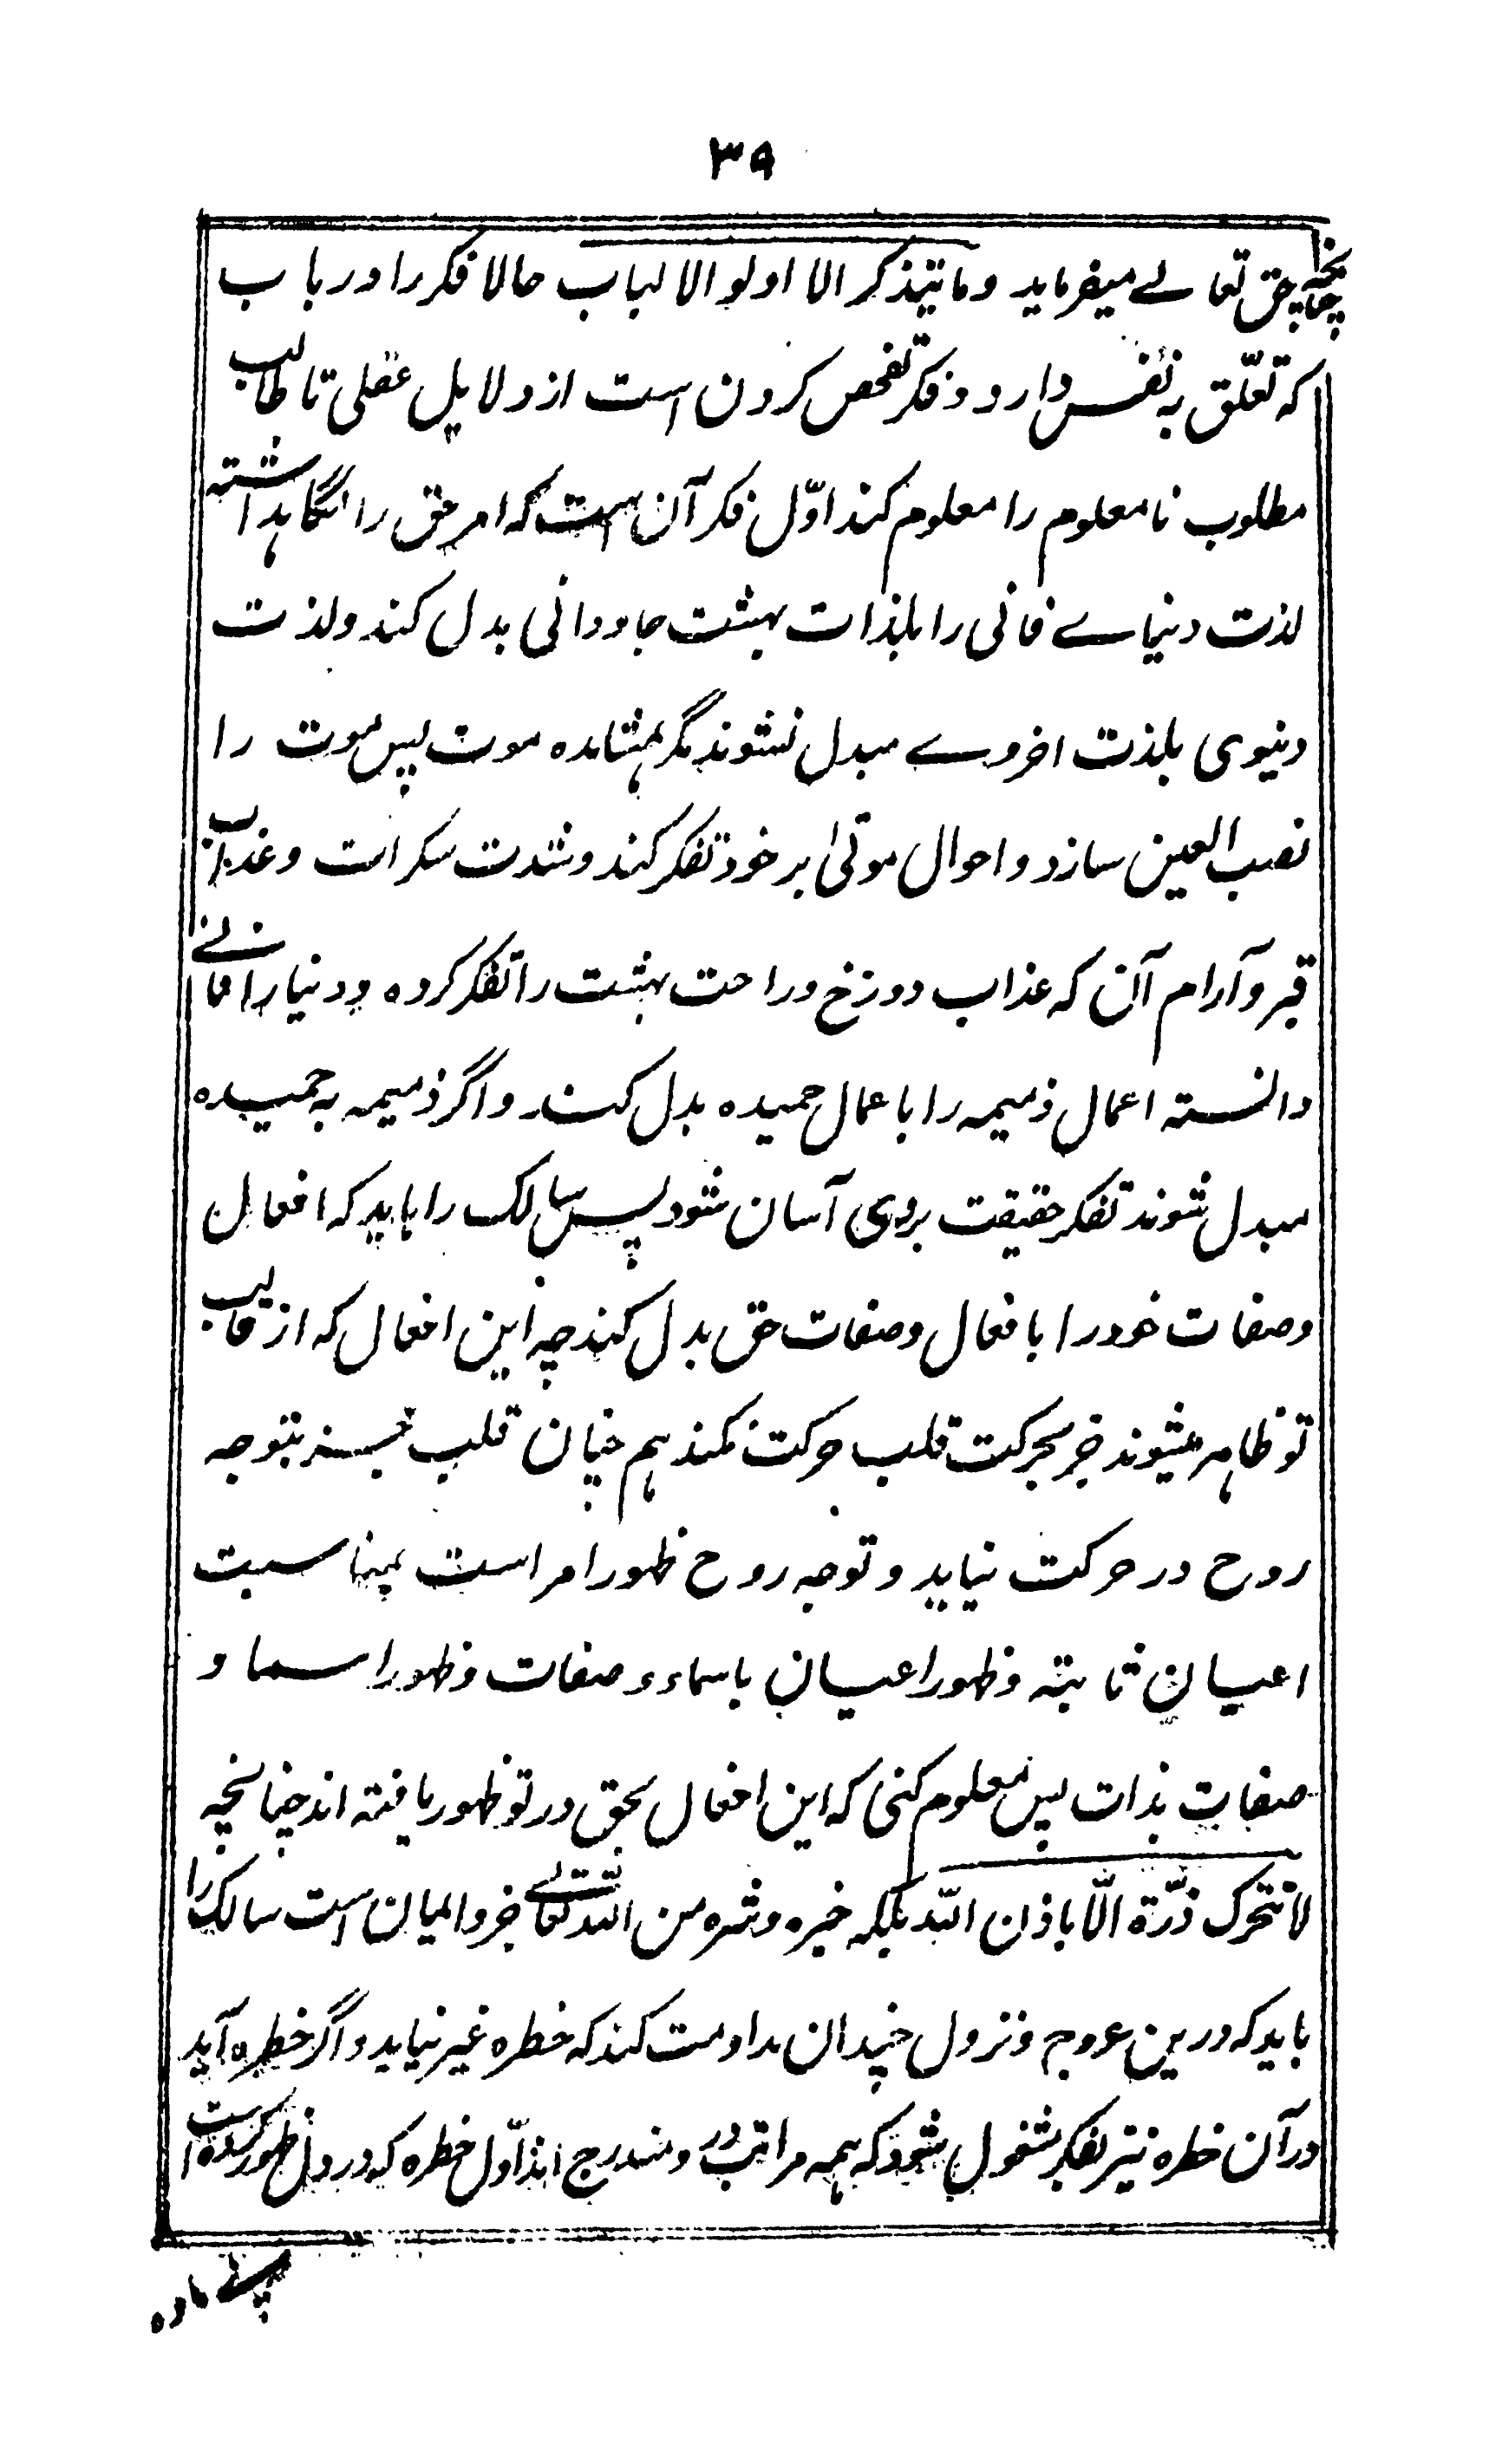 ۳۹
چنانچه حق تعالے میفرماید وما یتذکر الا اولو الالباب حالا فکر را در باب
که تعلّق به نفس دارد و فکر تفحص کردن است از دلایل عقلی تا طالب
مطلوب نامعلوم را معلوم کند اوّل فکر آن است که امر حق را نگاهداشته
لذت دنیاے فانی را بلذات بهشت جاودانی بدل کند و لذت
دنیوی بلذت اخروے مبدل نشوند مگر بمشاهده موت پس موت را
نصب العین سازد و احوال موتیٰ بر خود تفکر کند و شدت سکرات و عذاب
قبر و آرام آن که عذاب دوزخ و راحت بهشت را تفکر کرده و دنیا را فانے
دانسته اعمال ذمیمه را باعمال حمیده بدل کند و اگر ذمیمه به حمیده
مبدل شوند تفکر حقیقت بروی آسان شود پس سالک را باید که افعال
و صفات خود را بافعال و صفات حق بدل کند چه این افعال که از قالب
تو ظاهر میشوند جز بحرکت قلب حرکت نکند هم چنان قلب جز بتوجه
روح در حرکت نیاید و توجه روح ظهور امر است بمناسبت
اعیان ثابته و ظهور اعیان باسماء و صفات و ظهور اسما و
صفات بذات پس معلوم کنی که این افعال بحق در تو ظهور یافته اند چنانچه
لا تتحرک ذرّة الّا باذن اللّه بلکه خیره و شره من اللّه تعالے جزو ایمان است سالک را
باید که درین عروج و نزول چندان مداومت کند که خطره غیر نیاید و اگر خطره آید
در آن خطره نیز بفکر مشغول شود که همه مراتب در و مندرج اند اوّل خطره که در دل ظهور کرده است
پلے ماده